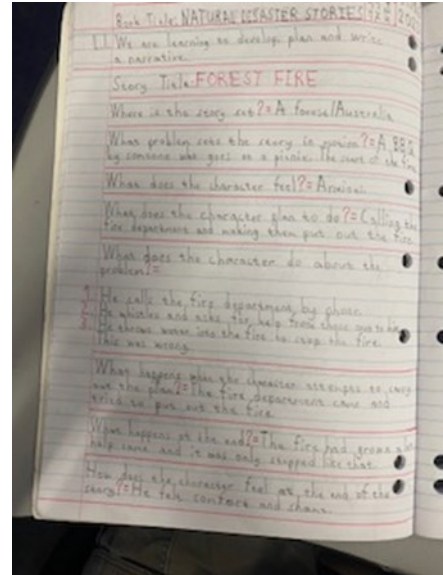 Book Title: NATURAL DISASTER STORIES
L.I. We are learning to develop, plan and write
a narrative.
Story Title: FOREST FIRE
Where is the story set?= A forest/Australia
What problem sets the story in motion?= A BBQ
by someone who goes on a picnic. The start of the fire.
What does the character feel?= Anxious.
What does the character plan to do?= Calling the
fire department and making them put out the fire.
What does the character do about the
problem?=
He calls the fire department by phone.
He whistles and asks for help from those next to him
He throws water into the fire to stop the fire.
This was wrong.
What happens when the character attempts to carry
out the plan?= The fire department came and
tried to put out the fire.
What happens at the end?= The fire had grown a lot
help came and it was only stopped like that.
How does the character feel at the end of the
story?= He felt and